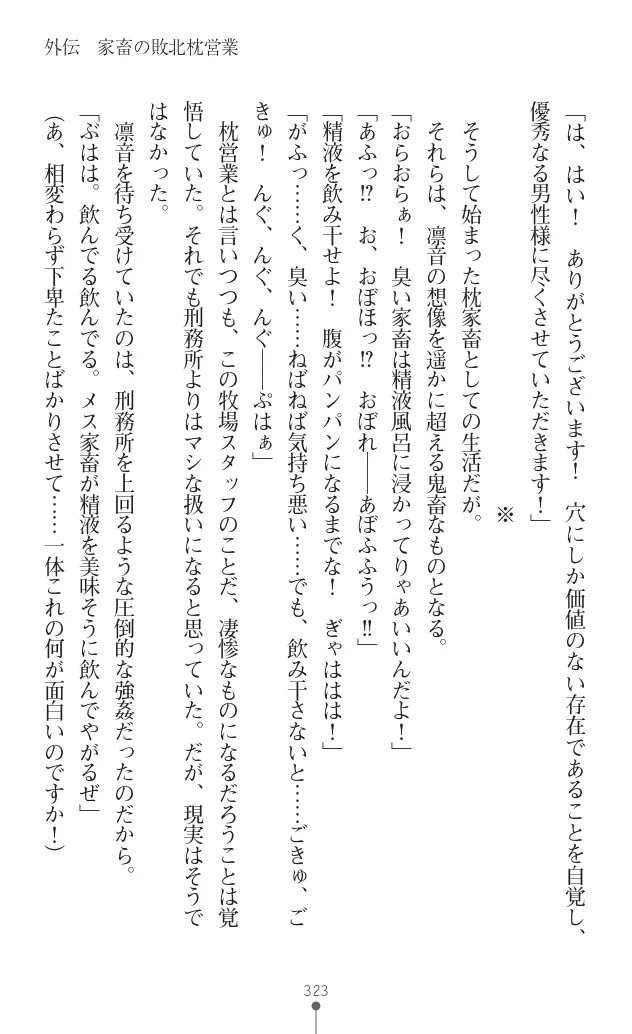 外伝　家畜の敗北枕営業
「は、はい！　ありがとうございます！　穴にしか価値のない存在であることを自覚し、
優秀なる男性様に尽くさせていただきます！」
※
そうして始まった枕家畜としての生活だが。
それらは、凛音の想像を遥かに超える鬼畜なものとなる。
「おらおらぁ！　臭い家畜は精液風呂に浸かってりゃあいいんだよ！」
「あふっ!?　お、おぼほっ!?　おぼれ――あぼふふうっ!!」
「精液を飲み干せよ！　腹がパンパンになるまでな！　ぎゃははは！」
「がふっ……く、臭い……ねばねば気持ち悪い……でも、飲み干さないと……ごきゅ、ご
きゅ！　んぐ、んぐ、んぐ――ぷはぁ」
枕営業とは言いつつも、この牧場スタッフのことだ、凄惨なものになるだろうことは覚
悟していた。それでも刑務所よりはマシな扱いになると思っていた。だが、現実はそうで
はなかった。
凛音を待ち受けていたのは、刑務所を上回るような圧倒的な強姦だったのだから。
「ぶはは。飲んでる飲んでる。メス家畜が精液を美味そうに飲んでやがるぜ」
（あ、相変わらず下卑たことばかりさせて……一体これの何が面白いのですか！）
323